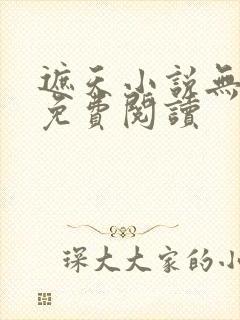 遮天小説無
免費閱讀
琛大大家的小